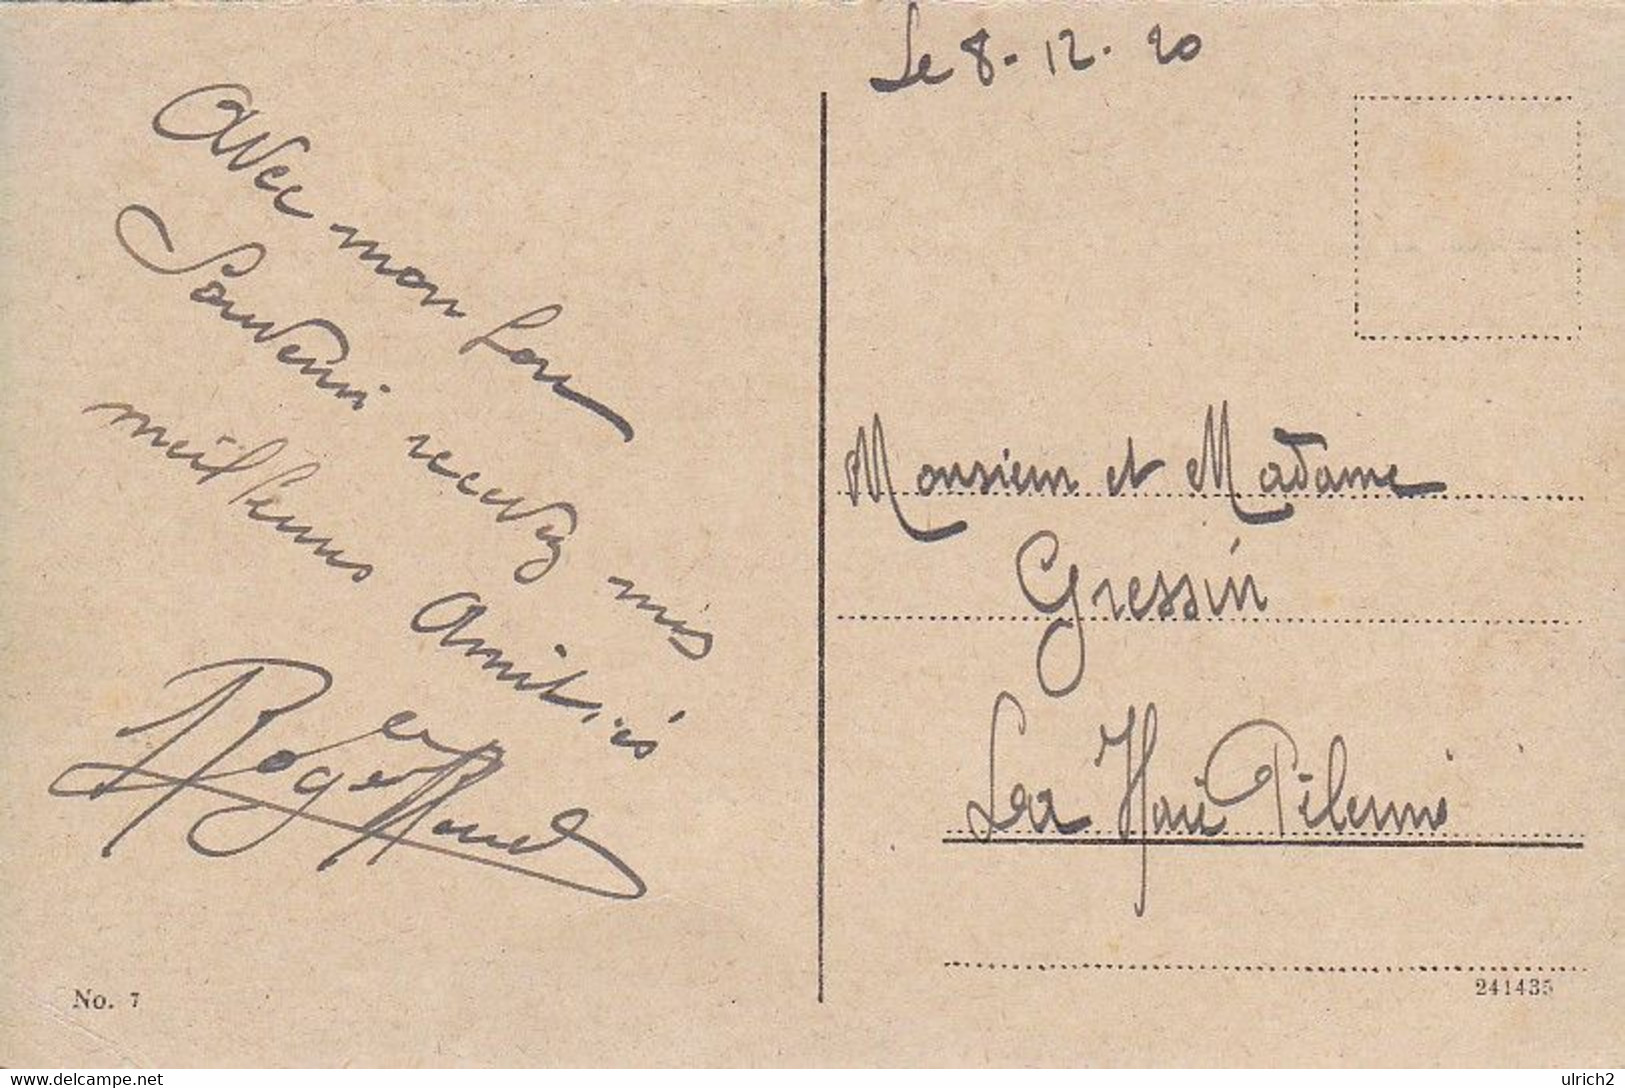 Le 8-12-20
Avec mon bon
Souvenir recevez mes
meilleures Amitiés
Roger
Monsieur et Madame
Gressin
La Haie
No. 7
241435
www.delcampe.net
ulrich2